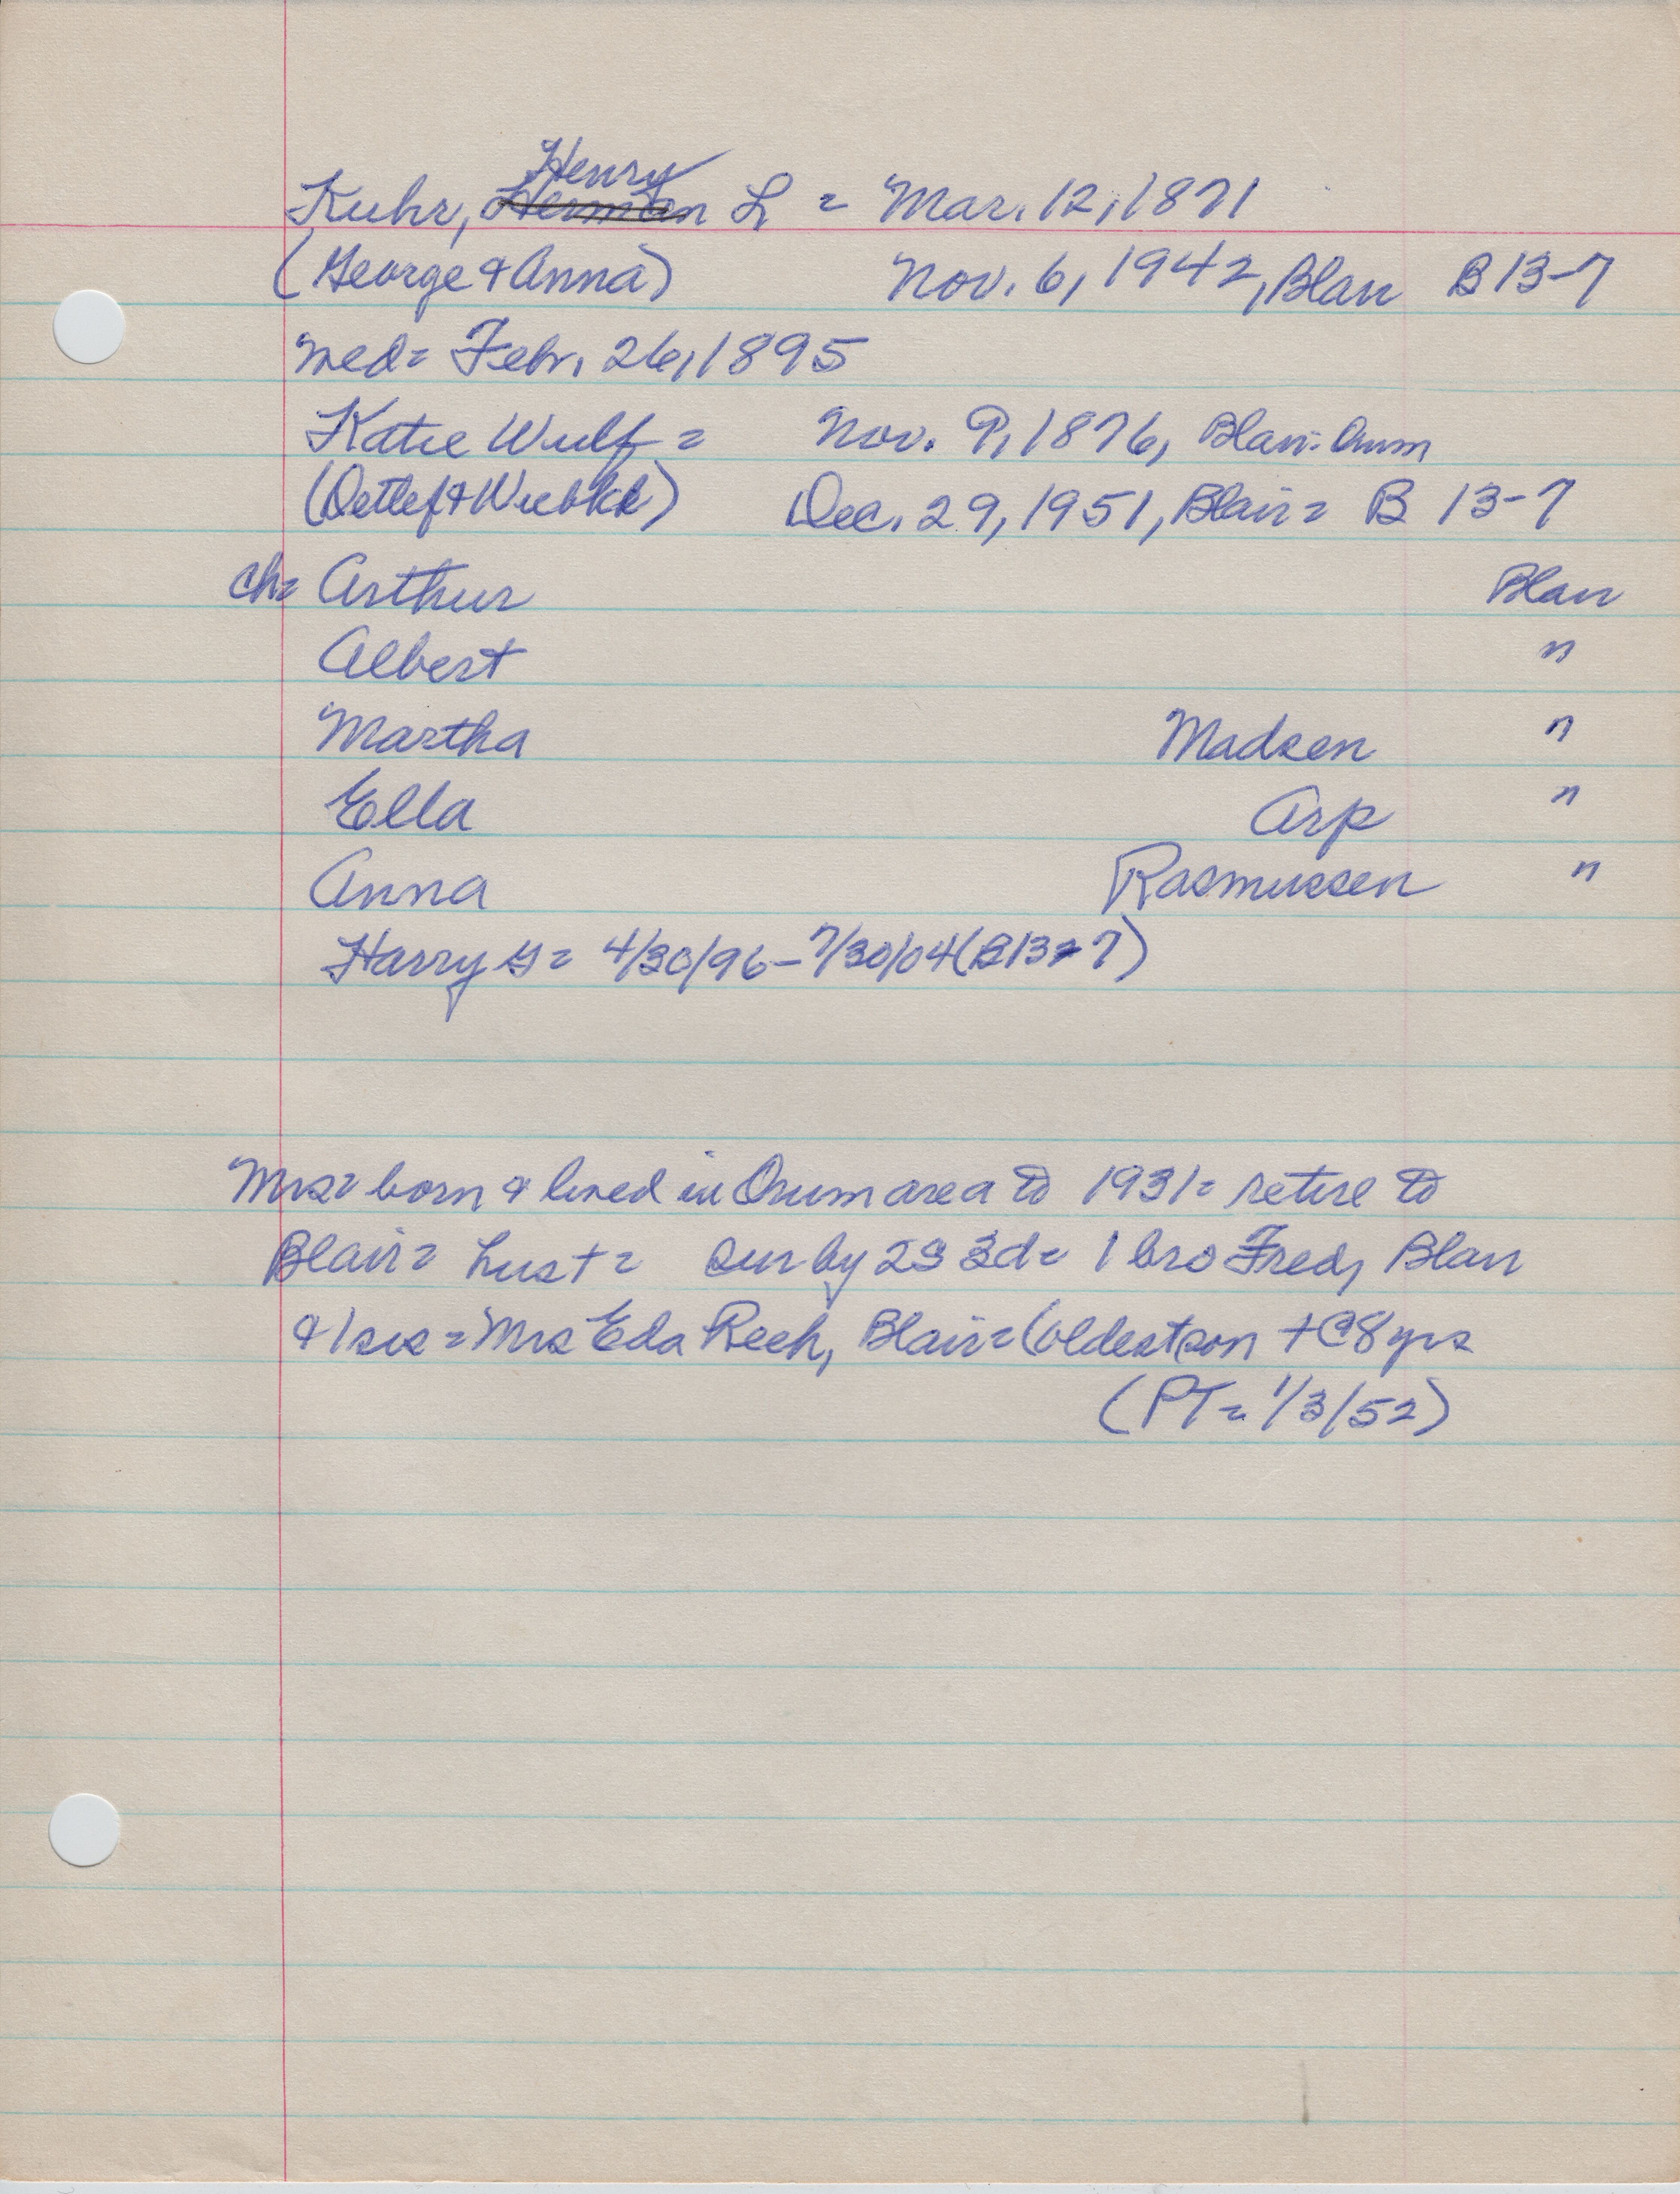 Henry
Kuhr, Herman L = Mar. 12, 1871
(George & Anna) Nov. 6, 1942, Blair B 13-7
med= Febr. 26, 1895
Katie Wulf = Nov. 9, 1876, Blair: Orum
(Detlef & Wiebke) Dec. 29, 1951, Blair= B 13-7
ch= Arthur Blair
Albert "
Martha Madsen "
Ella Arp "
Anna Rasmussen "
Harry G= 4/30/96-7/30/04 (B13-7)
Mrs= born & lived in Orum area to 1931= retire to
Blair= Lust= sur by 2S 3d= 1 bro Fred, Blair
& 1 sis = Mrs Eda Reeh, Blair= (oldest son + @ 8 yrs
(PT= 1/3/52)